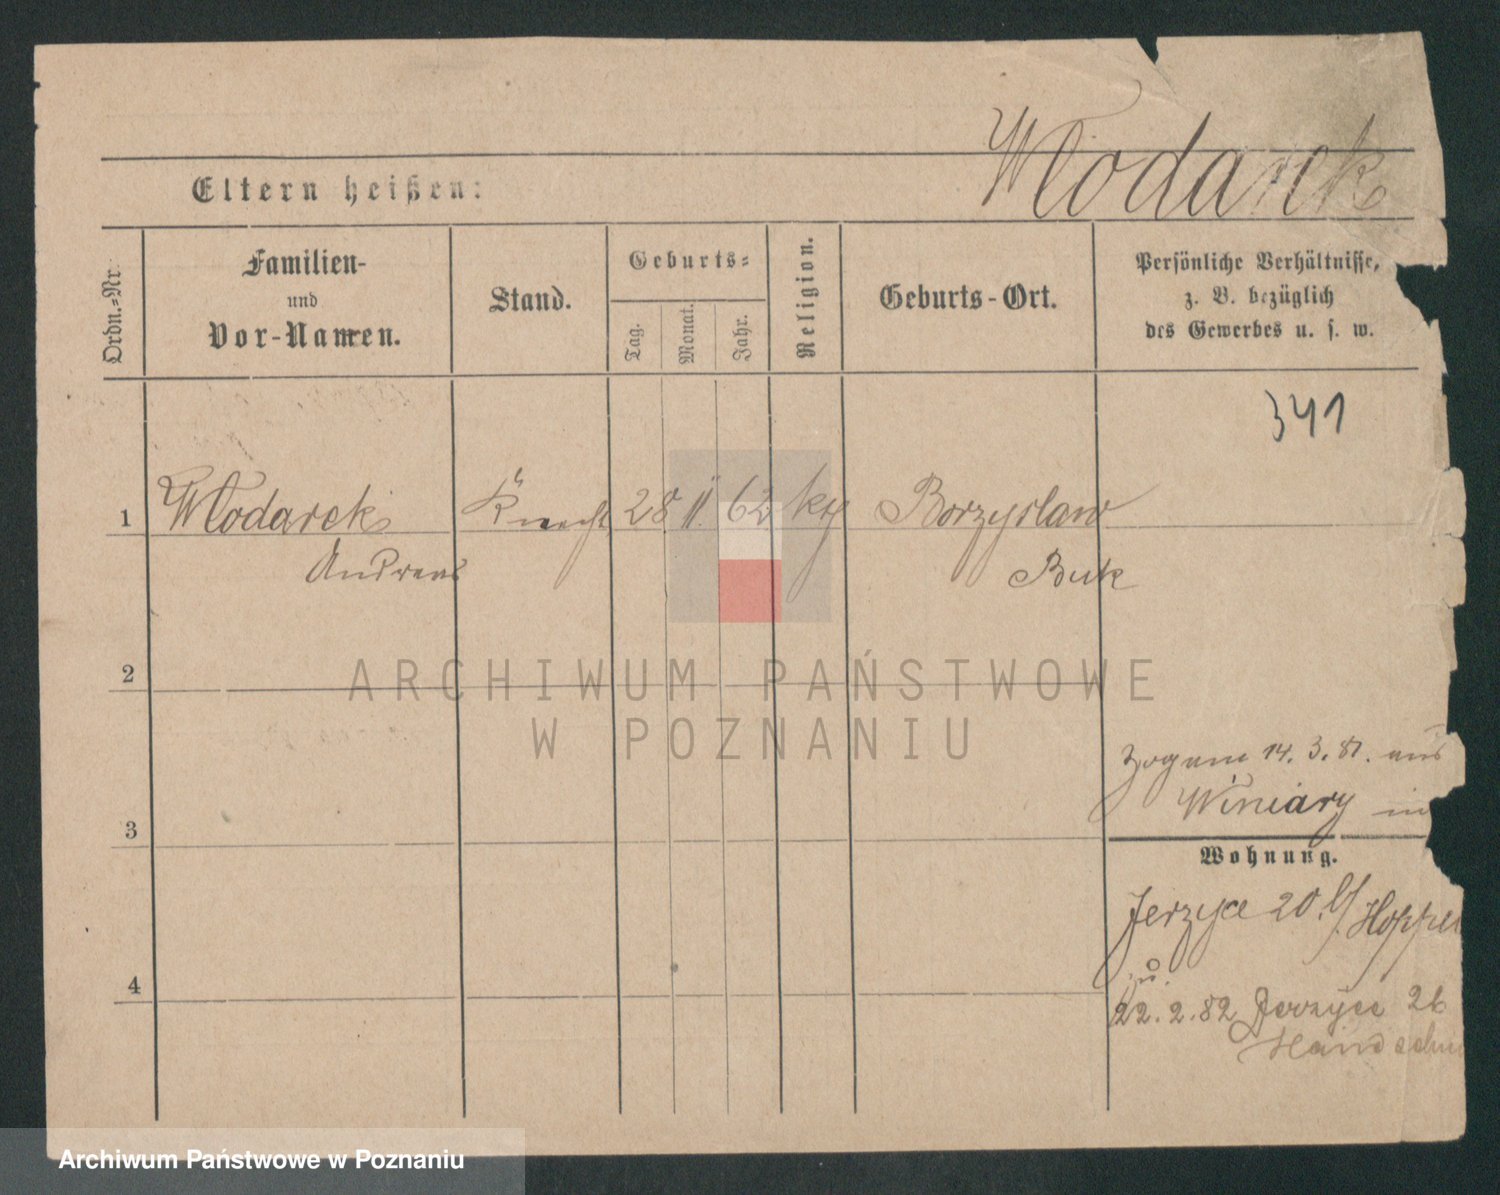 Wlodarek
Eltern heißen:
Ordn.-Nr.
Familien-
und
Vor-Namen.
Stand.
Geburts-
Tag.
Monat.
Jahr.
Religion.
Geburts-Ort.
Persönliche Verhältnisse,
z. B. bezüglich
des Gewerbes u. s. w.
341
1 Wlodarek Knecht 28 11. 62 Borzyslaw
Andreas Buk
2
ARCHIWUM PAŃSTWOWE
W POZNANIU
14. 3. 81. aus
Winiary in
3
Wohnung.
Jerzyce 20
4
22. 2. 82 Jerzyce 26
Archiwum Państwowe w Poznaniu